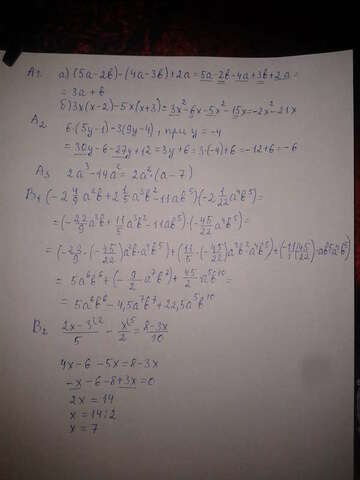 А1. а) (5a-2b)-(4a-3b)+2a=5a-2b-4a+3b+2a=
=3a+b
б) 3x(x-2)-5x(x+3)=3x²-6x-5x²-15x=-2x²-21x
А2
6·(5y-1)-3(9y-4), при y=-4
=30y-6-27y+12=3y+6=3·(-4)+6=-12+6=-6
А3 2a³-14a²=2a²·(a-7)
В1 (-2 4/9 a²b+2 1/5 a³b²-11ab⁵)·(-2 1/22 a⁴b⁵)=
=(-22/9 a²b+11/5 a³b²-11ab⁵)·(-45/22 a⁴b⁵)=
=(-22/9·(-45/22)a²b·a⁴b⁵)+(11/5·(-45/22)a³b²a⁴b⁵)+(-11·(-45/22)·ab⁵a⁴b⁵)
=5a⁶b⁶+(-9/2 a⁷b⁷)+45/2 a⁵b¹⁰=
=5a⁶b⁶-4,5a⁷b⁷+22,5a⁵b¹⁰
В2 2x-3\2/5 - x\5/2=8-3x/10
4x-6-5x=8-3x
-x-6-8+3x=0
2x=14
x=14:2
x=7